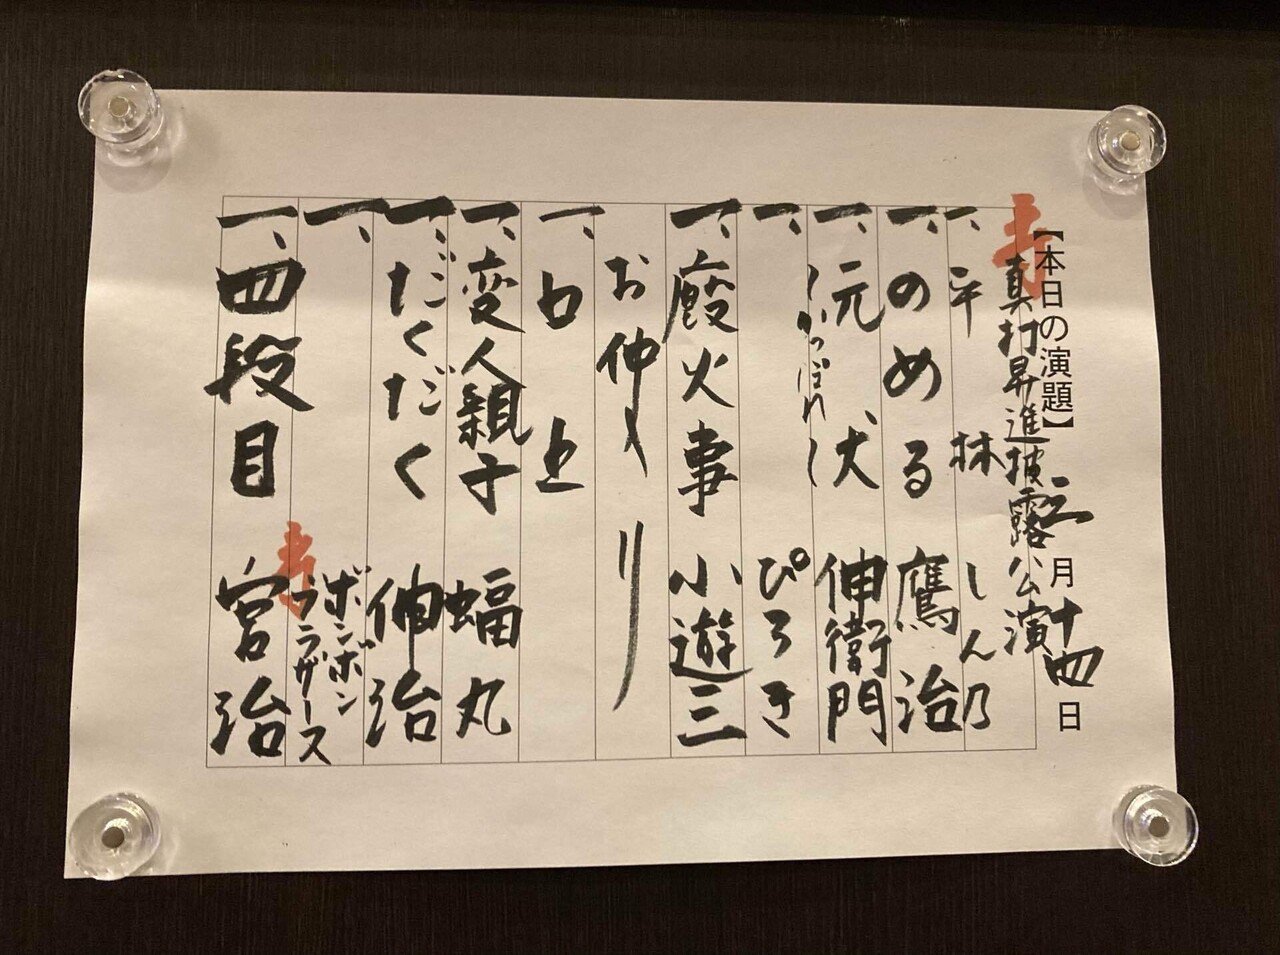 【本日の演題】三月十四日
寿
真打昇進披露公演
一、平林 しん乃
一、のめる 鷹治
一、元犬 伸衛門
(かっぽれ)
一、 ぴろき
一、廐火事 小遊三
お仲入り
一、口上
一、変人親子 蝠丸
一、だくだく 伸治
一、 ボンボンブラザース
一、四段目 宮治
寿